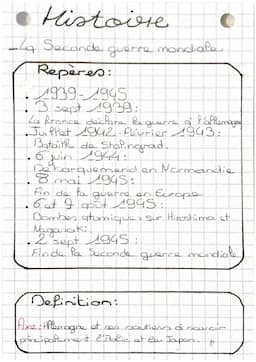 Histoire
- La Seconde guerre mondiale
Repères:
. 1939-1945
. 3 sept 1939:
La France déclare la guerre à l'Allemagne
. Juillet 1942 - Février 1943:
Bataille de Stalingrad.
. 6 juin 1944:
Débarquement en Normandie
. 8 mai 1945:
Fin de la guerre en Europe
. 6 et 9 août 1945:
Bombes atomiques sur Hiroshima et
Nagasaki.
. 2 sept 1945:
Fin de la Seconde guerre mondiale
Définition:
Axe: Allemagne et ses
principalement l'Italie et le Japon.